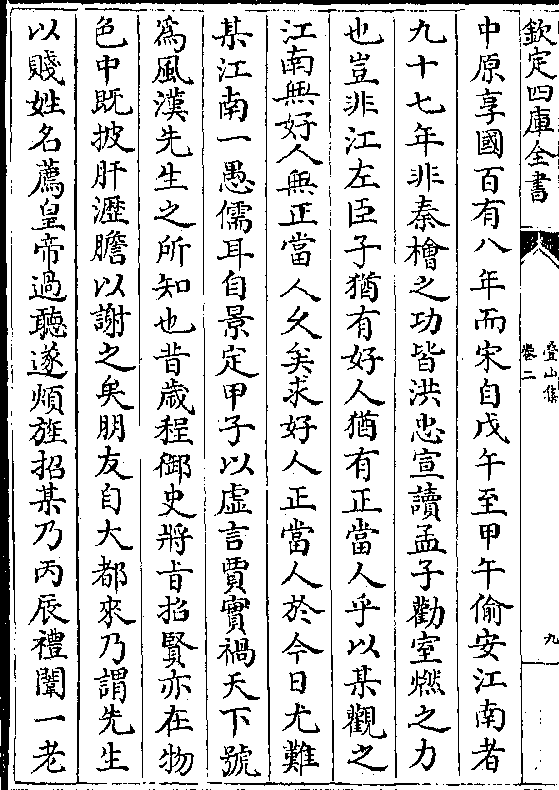 欽定四庫全書
疊山集
卷二
九
中原享國百有八年而宋自戊午至甲午偷安江南者
九十七年非秦檜之功皆洪忠宣讀孟子勸室燃之力
也豈非江左臣子猶有好人猶有正當人乎以某觀之
江南無好人無正當人久矣求好人正當人於今日尤難
某江南一愚儒耳自景定甲子以虚言賈實禍天下號
為風漢先生之所知也昔歲程御史將㫖招賢亦在物
色中既披肝瀝膽以謝之矣朋友自大都來乃謂先生
以賤姓名薦皇帝過聽遂頻旌招某乃丙辰禮闈一老